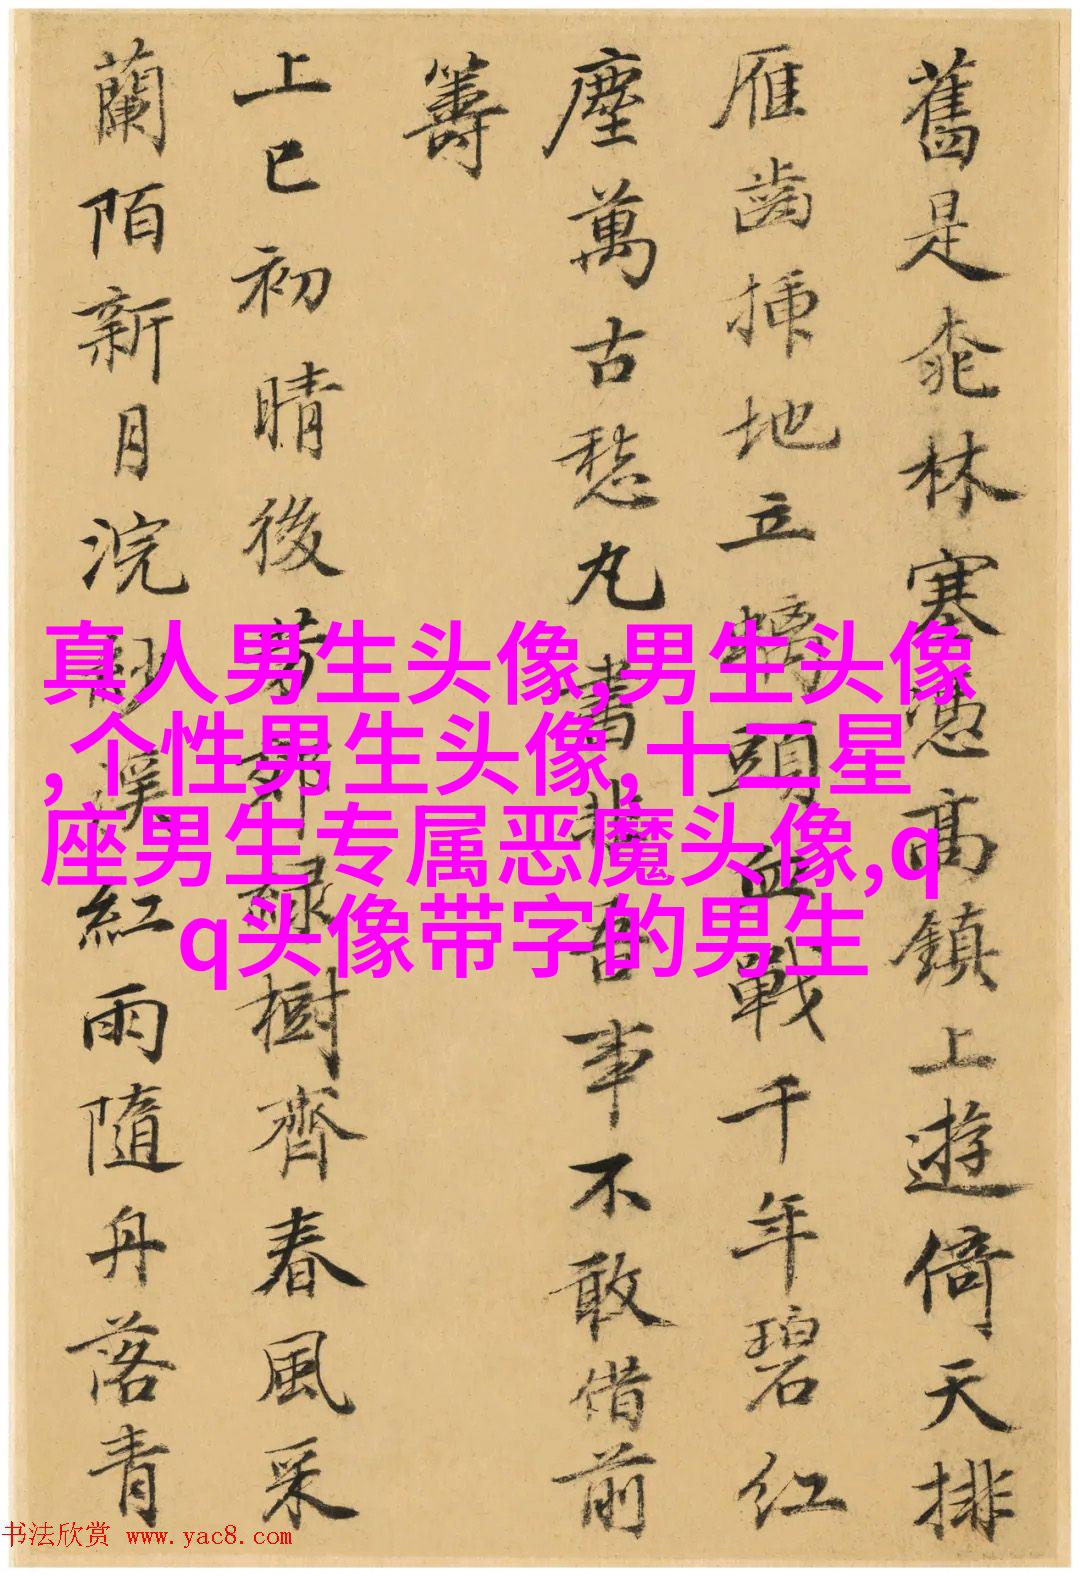 舊是桃林塞憑高鎮上遊倚天排
雁齒插地立螭頭血戰千年碧紅
塵萬古愁丸書非吾事不敢借前
籌
上巳初晴後芳郊綠樹齊春風采
蘭陌新月浣紗溪紅雨隨舟落青
真人男生头像,男生头像
,个性男生头像,十二星
座男生专属恶魔头像,q
q头像带字的男生
书法欣赏 www.yac8.com